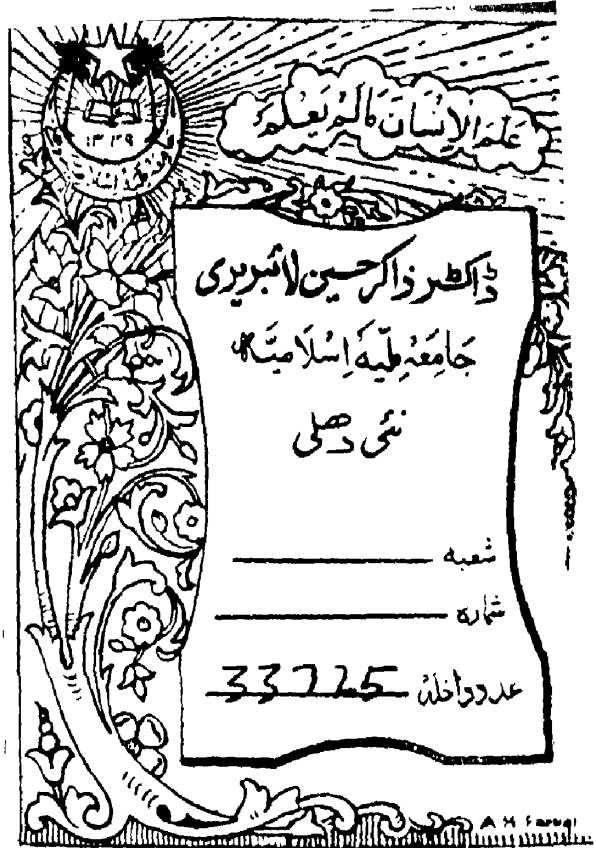 عَلَّمَ الْاِنْسَانَ مَا لَمْ يَعْلَمْ
۱۳۳۹
ڈاکٹر ذاکر حسین لائبریری
جَامِعَہ مِلّیَہ اِسْلَامِیَّہ
نئی دھلی
شعبہ
شمارہ
عدد داخلہ 33725
A H Faruqi